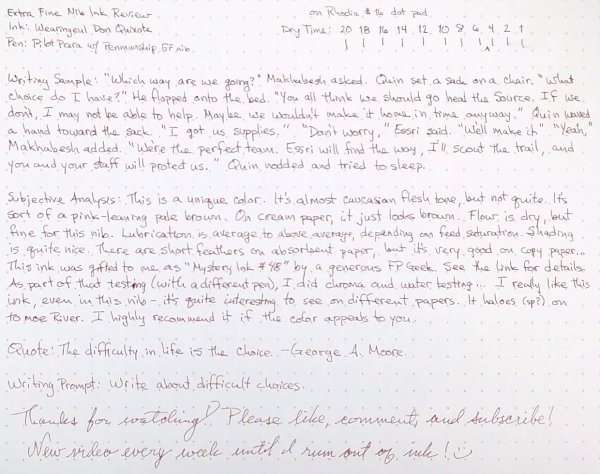 Extra Fine Nib Ink Review
on Rhodia #16 dot pad
Ink: Wearingeul Don Quixote
Dry Time: 20 18 16 14 12 10 8 6 4 2 1
Pen: Pilot Prera w/ Penmanship EF nib
Writing Sample: "Which way are we going?" Makhabesh asked. Quin set a sack on a chair. "What
choice do I have?" He flopped onto the bed. "You all think we should go heal the Source. If we
don't, I may not be able to help. Maybe we wouldn't make it home in time anyway." Quin waved
a hand toward the sack. "I got us supplies." "Don't worry," Essri said. "We'll make it." "Yeah,"
Makhabesh added. "We're the perfect team. Essri will find the way, I'll scout the trail, and
you and your staff will protect us." Quin nodded and tried to sleep.
Subjective Analysis: This is a unique color. It's almost caucasian flesh tone, but not quite. It's
sort of a pink-leaning pale brown. On cream paper, it just looks brown. Flow is dry, but
fine for this nib. Lubrication is average to above average, depending on feed saturation. Shading
is quite nice. There are short feathers on absorbent paper, but it's very good on copy paper...
This ink was gifted to me as "Mystery Ink #98" by a generous FP Geek. See the link for details.
As part of that testing (with a different pen), I did chroma and water testing... I really like this
ink, even in this nib - it's quite interesting to see on different papers. It haloes (sp?) on
Tomoe River. I highly recommend it if the color appeals to you.
Quote: The difficulty in life is the choice. -George A. Moore
Writing Prompt: Write about difficult choices.
Thanks for watching! Please like, comment, and subscribe!
New video every week until I run out of ink! ☺